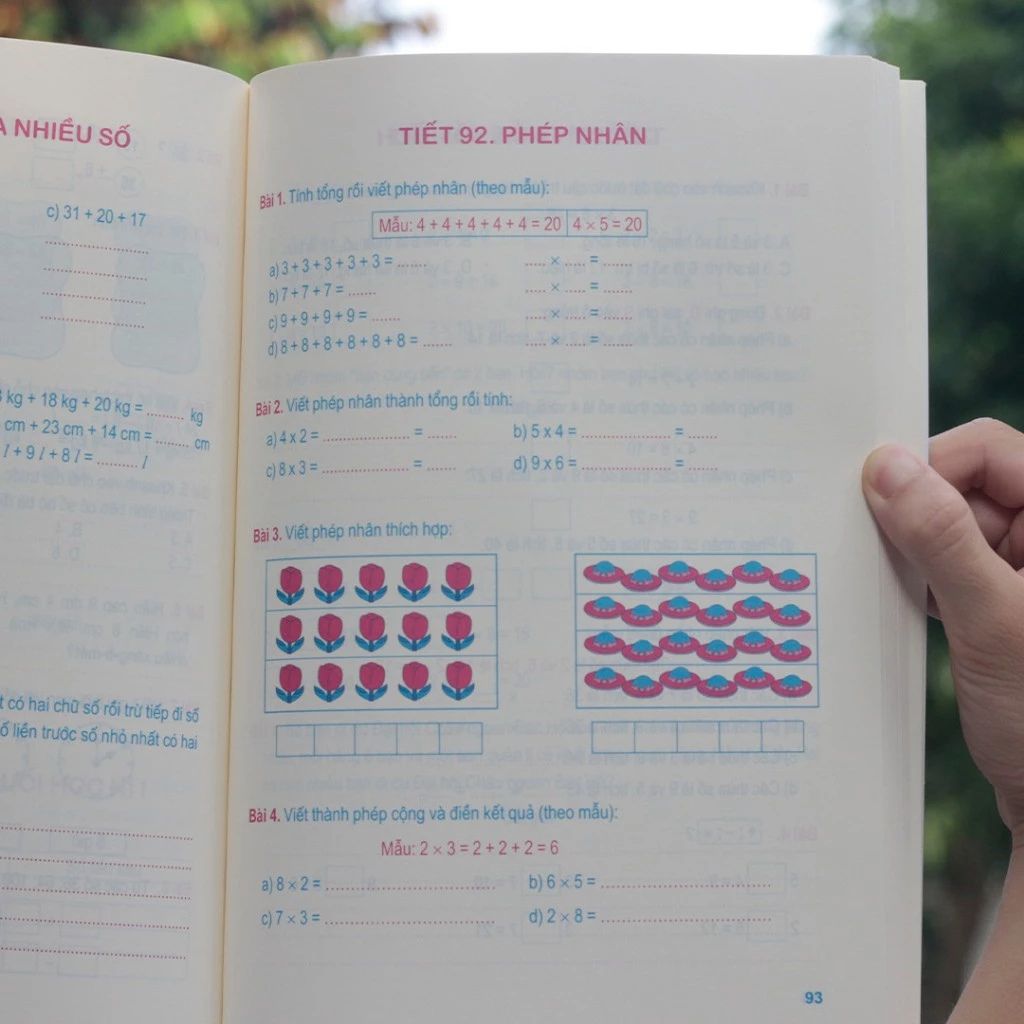 A NHIỀU SỐ
c) 31 + 20 + 17
kg + 18 kg + 20 kg = ........ kg
cm + 23 cm + 14 cm = ........ cm
l + 9 l + 8 l = ......... l
t có hai chữ số rồi trừ tiếp đi số
ố liền trước số nhỏ nhất có hai
TIẾT 92. PHÉP NHÂN
Bài 1. Tính tổng rồi viết phép nhân (theo mẫu):
Mẫu: 4 + 4 + 4 + 4 + 4 = 20 4 × 5 = 20
a) 3 + 3 + 3 + 3 + 3 = ...... ...... × ...... = ......
b) 7 + 7 + 7 = ...... ...... × ...... = ......
c) 9 + 9 + 9 + 9 = ...... ...... × ...... = ......
d) 8 + 8 + 8 + 8 + 8 + 8 = ...... ...... × ...... = ......
Bài 2. Viết phép nhân thành tổng rồi tính:
a) 4 x 2 = .................... = ...... b) 5 x 4 = .................... = ......
c) 8 x 3 = .................... = ...... d) 9 x 6 = .................... = ......
Bài 3. Viết phép nhân thích hợp:
Bài 4. Viết thành phép cộng và điền kết quả (theo mẫu):
Mẫu: 2 × 3 = 2 + 2 + 2 = 6
a) 8 × 2 = ........................................ b) 6 × 5 = ........................................
c) 7 × 3 = ........................................ d) 2 × 8 = ........................................
93